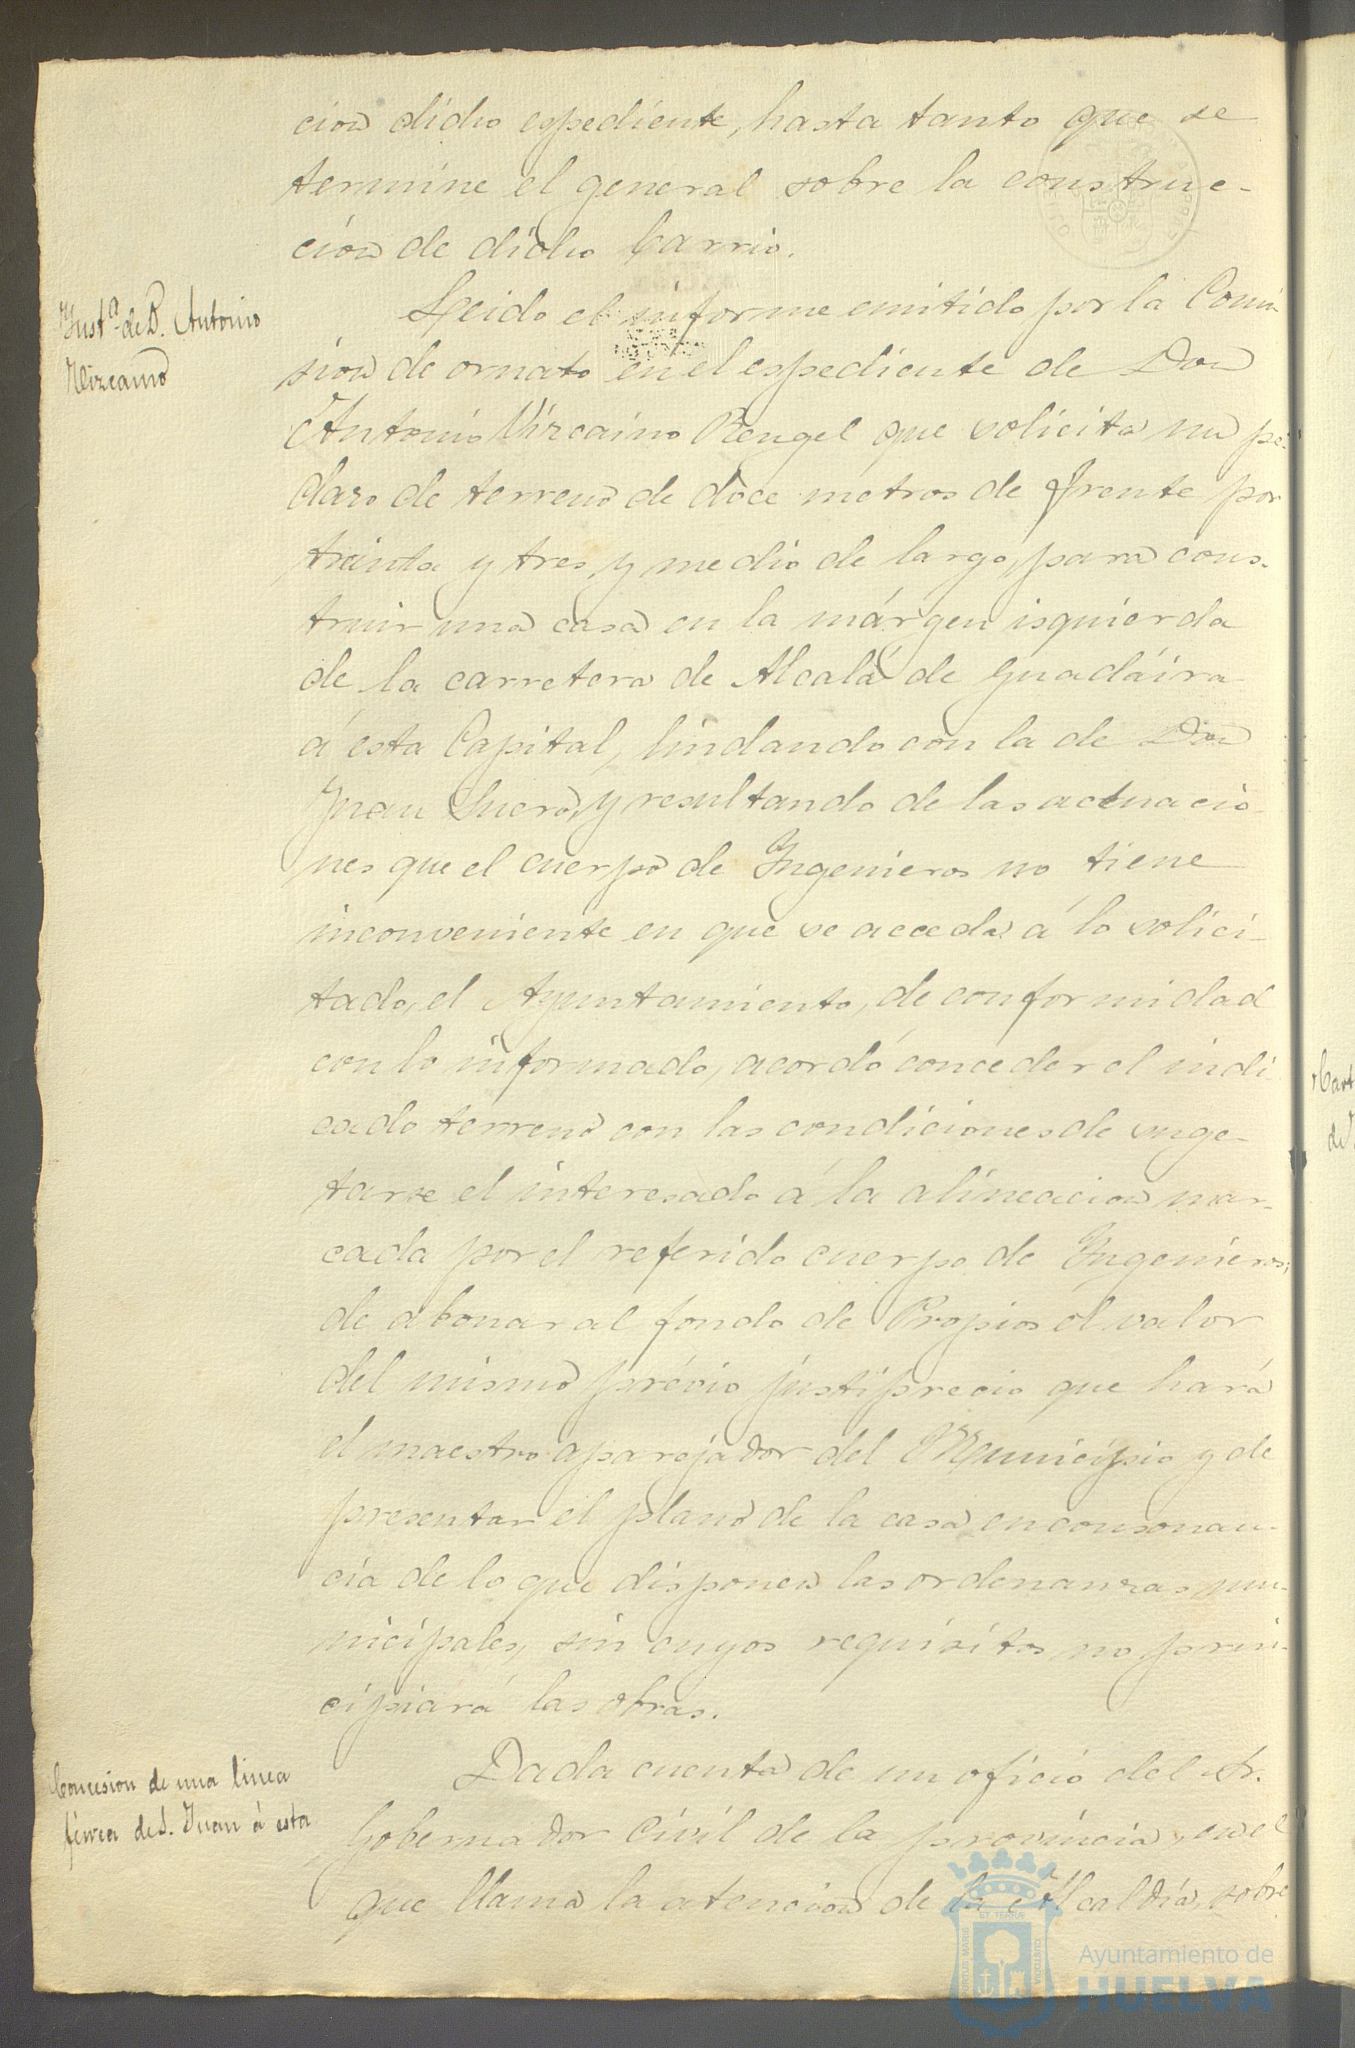 cion dicho espediente, hasta tanto que se
termine el general sobre la construc-
cion de dicho barrio.
Inst.ª de D. Antonio
Vizcaino
Leido el informe emitido por la Comi-
sion de ornato en el espediente de Don
Antonio Vizcaino Rengel que solicita un pe-
dazo de terreno de doce metros de frente por
treinta y tres y medio de largo, para cons-
truir una casa en la márgen isquierda
de la carretera de Alcalá de Guadáira
á esta Capital, lindando con la de Don
Juan Suero, y resultando de las actuacio-
nes que el cuerpo de Ingenieros no tiene
inconveniente en que se acceda á lo solici-
tado, el Ayuntamiento, de conformidad
con lo informado, acordó conceder el indi-
cado terreno con las condiciones de suge-
tarse el interesado á la alineacion mar-
cada por el referido cuerpo de Ingenieros;
de abonar al fondo de Propios el valor
del mismo prévio justiprecio que hará
el maestro aparejador del Municipio y de
presentar el plano de la casa en consonan-
cia de lo que disponen las ordenanzas mu-
nicipales, sin cuyos requisitos no prin-
cipiará las obras.
Concesion de una linea
férrea de S. Juan á esta
Dada cuenta de un oficio del Sr.
Gobernador Civil de la provincia, en el
que llama la atencion de la Alcaldía, sobre
Ayuntamiento de
HUELVA